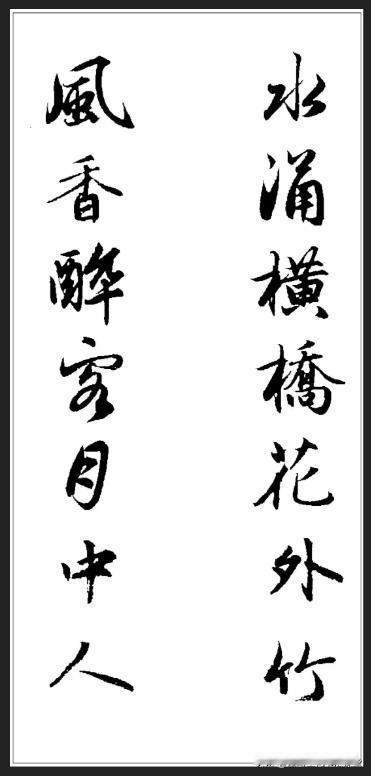 水涌橫橋花外竹
風香醉客月中人